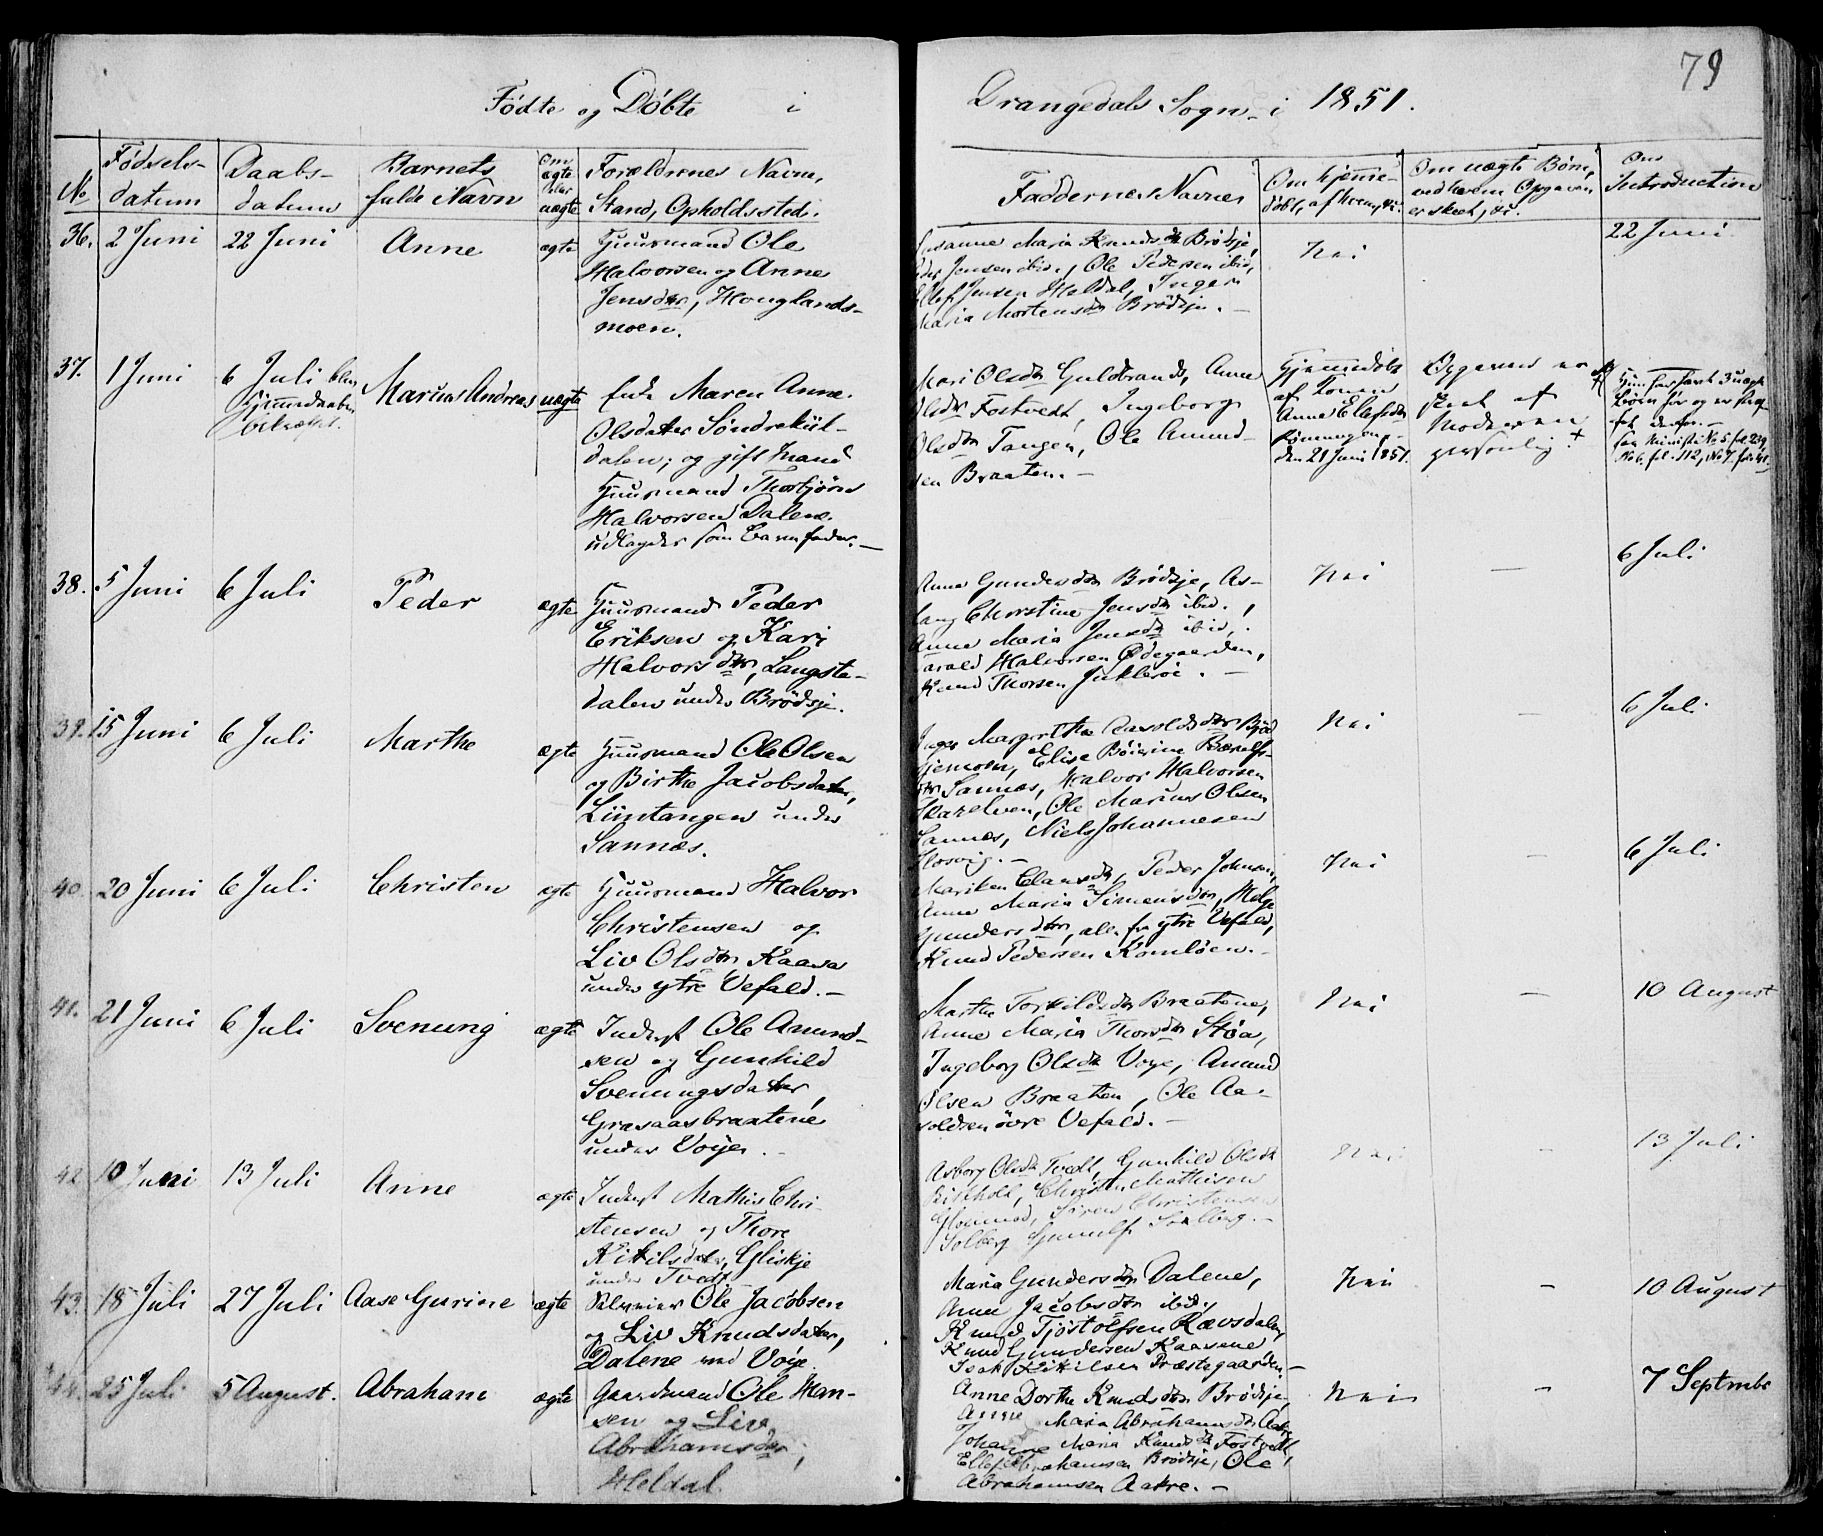 79
Fødte og Døbte i Drangedals Sogn i 1851.
No
Fødsels-
datum
Daabs-
datum
Barnets
fulde Navn
Om
ægte
eller
uægte
Forældrenes Navne,
Stand, Opholdssted.
Faddernes Navne
Om hjemme-
døbt, af hvem, &c.
Om uægte Børn,
ved hvem Opgaven
er skeet, &c.
Om
Introduction
36. 2 Juni 22 Juni Anne ægte
Huusmand Ole
Halvorsen og Anne
Jensdtr, Houglands-
moen.
Susanne Maria Knudsdtr Brødsje,
Peder Jensen ibid., Ole Pedersen ibid,
Ellef Jensen Heldal, Inger
Maria Mortensdtr Brødsje. -
Nei
22 Juni
37. 1 Juni
6 Juli blev
Hjemmedaaben
bekræftet.
Marius Andreas uægte
Maren Anne
Olsdater Søndrekiil-
dalen; og gift Mand
Huusmand Thorbjørn
Halvorsen Dalene
udlagdes som Barnefader. -
Mari Olsdtr Guldbrand, Anne
Olsdtr Fostvedt, Ingeborg
Olsdtr Tangen, Ole Amund-
sen Braaten. -
Hjemmedøbt
af Konen
Anne Elefsdtr
den 21 Juni 1851.
Opgaven er
skeet af
Moderen
personlig. +
Hun har havt 3 uægte
Børn før og er
6 Juli
38. 5 Juni 6 Juli Peder ægte
Huusmand Peder
Eriksen og Kari
Halvorsdtr, Langste-
dalen under Brødsje.
Anne Gundersdtr Brødsje, As-
laug Chirstine Jensdtr ibid.,
Anne Maria Jensdtr ibid.,
Harald Halvorsen Ødegaarden,
Knud Thorsen
Nei -
6 Juli
39. 15 Juni 6 Juli Marthe ægte
Huusmand Ole Olsen
og Birthe Jacobsdater,
Limtangen under
Sannæs.
Inger Margrethe
Elise
Sannæs, Halvor Halvorsen
Ole Marius Olsen
Sannæs, Niels Johannesen
Nei -
6 Juli
40. 20 Juni 6 Juli Christen ægte
Huusmand Halvor
Christensen og
Liv Olsdtr Kaasa
under ytre Vefald. -
Mariken Clausdtr, Peder Johnsen,
Anne Maria Simensdtr, Helge
Gundersdtr, alle fra ytre Vefald,
Knud Pedersen Komløen. -
Nei -
10 August
41. 21 Juni 6 Juli Svenung ægte
Inderst Ole Amund-
sen og Gunhild
Svenungsdater,
Grasaasbraatene
under Voje. -
Marthe Torkildsdtr Braatene,
Anne Maria Thorsdtr Støa,
Ingeborg Olsdtr Voje, Amund
Olsen Braaten, Ole Aa-
soldsen øvre Vefald. -
Nei -
13 Juli
42. 10 Juni 13 Juli Anne ægte
Inderst Mathis Chri-
stensen og Thore
Kitilsdater, Gliskje
under Tvedt.
Asborg Olsdtr Tvedt, Gunhild Olsdtr
Christen Mathisen
Søren Christensen
Solberg, Gunulf Solberg. -
Nei -
43. 18 Juli 27 Juli Aase Gurine ægte
Selveier Ole Jacobsen
og Liv Knudsdater,
Dalene ved Voje.
Maria Gundersdtr Dalene,
Anne Jacobsdtr ibid.,
Knud Tjøstolfsen Rævsdalen,
Knud Gundersen Kaasene
Isak Kitilsen Præstegaarden. -
Nei -
10 August
44. 25 Juli 5 August. Abraham ægte
Gaardmand Ole Han-
sen og Liv
Abrahamsdtr,
Heldal.
Anne Dorthe Knudsdtr Brødsje,
Anne Maria Abrahamsdtr Aakre
Johanne Maria Knudsdtr Fostvedt,
Ellef Abrahamsen Brødsje, Ole
Abrahamsen Aakre. -
Nei -
7 Septmbr